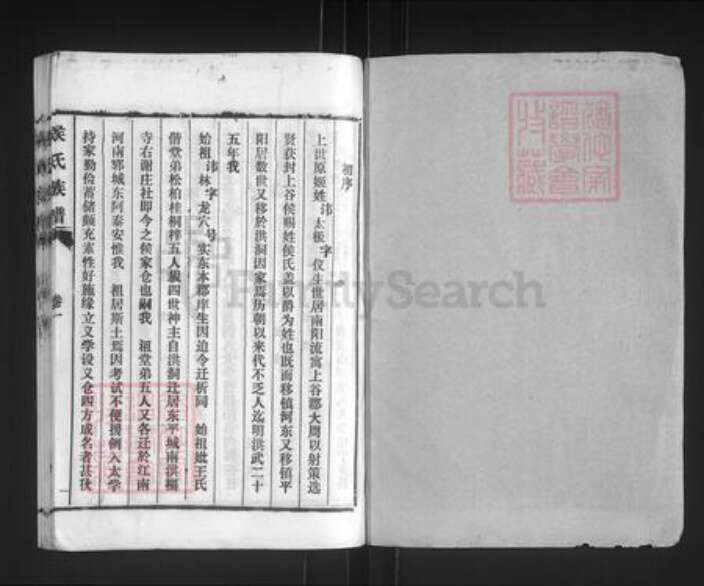 初序
上世原姬姓讳太极字仪生世居南阳流寓上谷郡大周以射策选
贤获封上谷侯赐姓侯氏盖以爵为姓也既而移镇河东又移镇平
阳居数世又移於洪洞因家焉历朝以来代不乏人迄明洪武二十
五年我
始祖讳林字龙六号实东本郡庠生因迫令迁析同 始祖妣王氏
偕堂弟松柏桂桐梓五人载四世神主自洪洞迁居东平城南洪福
寺右谢庄社即今之侯家仓也嗣我 祖堂弟五人又各迁於江南
河南郓城东阿泰安惟我 祖居斯土焉因考试不便援例入太学
持家勤俭蓄储颇充素性好施缘立义学设义仓四方成名者甚
侯氏族谱
卷一
一
FamilySearch